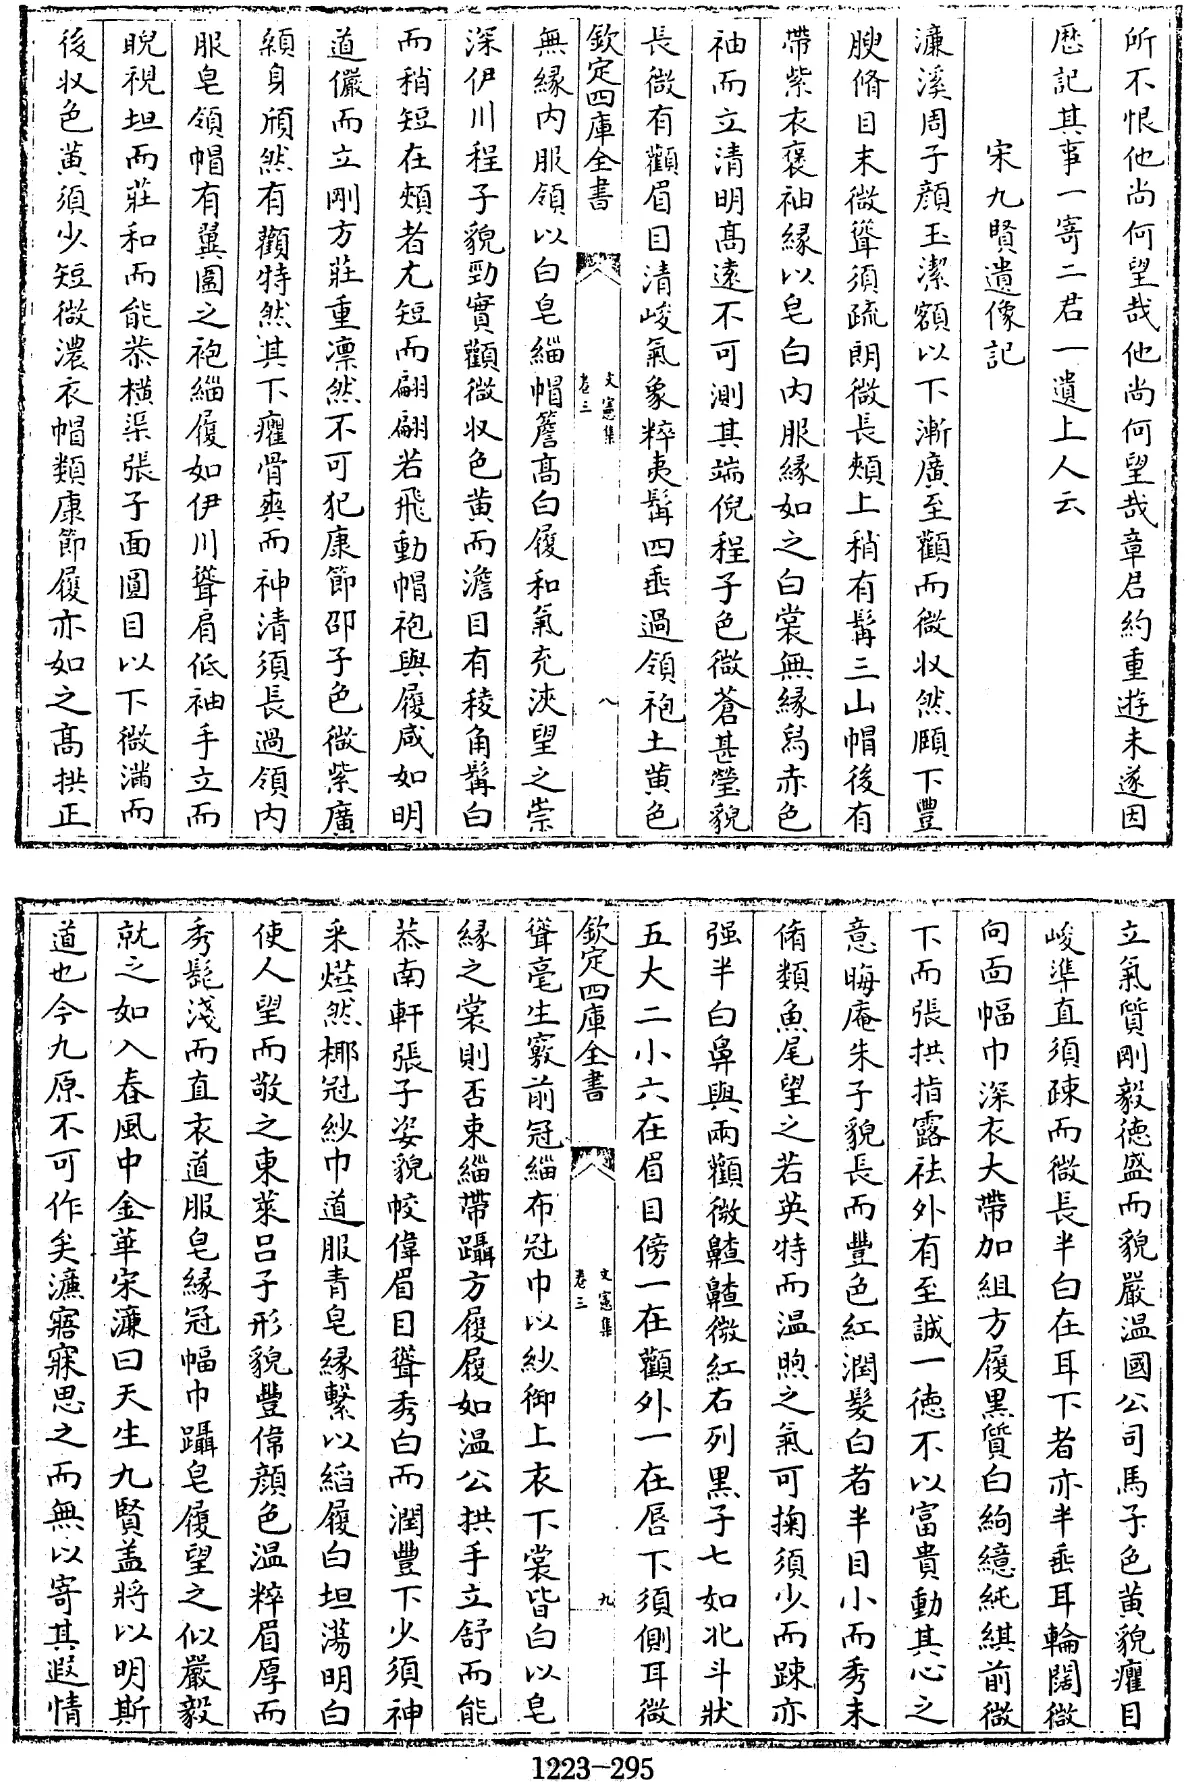 所不恨他尚何望哉他尚何望哉章君約重遊未遂因
歴記其事一寄二君一遺上人云
宋九賢遺像記
濂溪周子顔玉潔額以下漸廣至顴而微収然頤下豐
腴脩目末微聳須疏朗微長頰上稍有髯三山帽後有
帶紫衣褒袖緣以皂白内服緣如之白裳無緣舄赤色
袖而立清明髙遠不可測其端倪程子色微蒼甚瑩貌
長微有顴眉目清峻氣象粹夷髯四垂過領袍土黄色
欽定四庫全書
文憲集
卷三
八
無緣内服領以白皂緇帽簷髙白履和氣充浹望之崇
深伊川程子貌勁實顴微収色黄而澹目有稜角髯白
而稍短在頰者尤短而翩翩若飛動帽袍與履咸如明
道儼而立剛方莊重凛然不可犯康節邵子色微紫廣
顙身頎然有顴特然其下癯骨爽而神清須長過領内
服皂領帽有翼圍之袍緇履如伊川聳肩低袖手立而
睨視坦而莊和而能恭横渠張子面圓目以下微滿而
後収色黄須少短微濃衣帽類康節履亦如之髙拱正
立氣質剛毅徳盛而貌嚴温國公司馬子色黄貌癯目
峻準直須疎而微長半白在耳下者亦半垂耳輪闊微
向面幅巾深衣大帶加組方履黒質白絇繶純綦前微
下而張拱指露袪外有至誠一徳不以富貴動其心之
意晦庵朱子貌長而豐色紅潤髮白者半目小而秀末
脩類魚尾望之若英特而温煦之氣可掬須少而踈亦
强半白鼻與兩顴微齄齄微紅右列黒子七如北斗狀
五大二小六在眉目傍一在顴外一在唇下須側耳微
欽定四庫全書
文憲集
卷三
九
聳毫生竅前冠緇布冠巾以紗御上衣下裳皆白以皂
緣之裳則否束緇帶躡方履履如温公拱手立舒而能
恭南軒張子姿貌恔偉眉目聳秀白而潤豐下少須神
采煜然梛冠紗巾道服青皂緣繫以縚履白坦蕩明白
使人望而敬之東萊吕子形貌豐偉顔色温粹眉厚而
秀髭淺而直衣道服皂緣冠幅巾躡皂履望之似嚴毅
就之如入春風中金華宋濂曰天生九賢盖將以明斯
道也今九原不可作矣濂寤寐思之而無以寄其遐情
1223-295